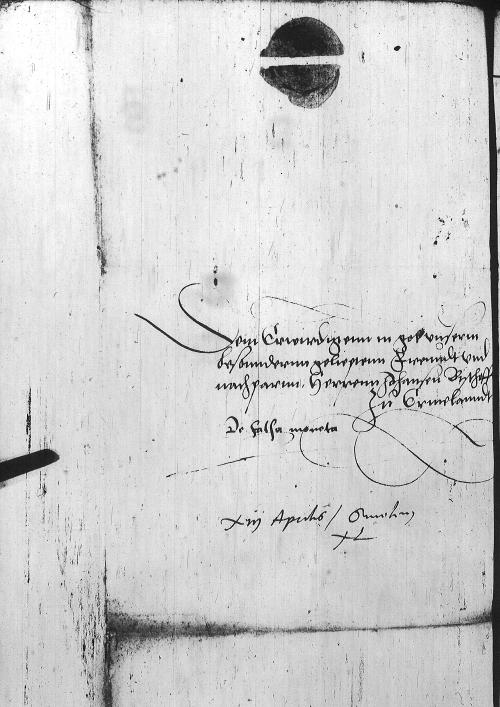 Dem Erwirdigenn in got vnserm
besonndernn geliepten Frewndt vnd
nachparnn, Herrenn Johansen Bischoff
Zu Ermelanndt
De falsa moneta
xiij Aprilis /
XL